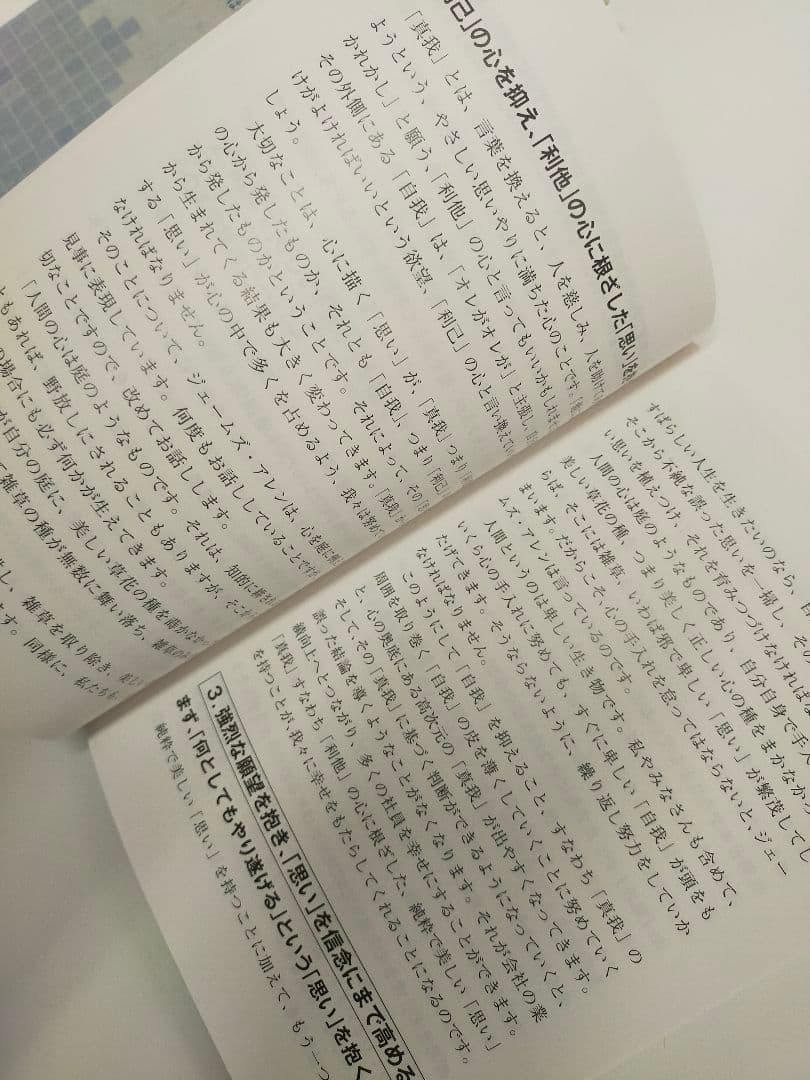 己」の心を抑え、「利他」の心に根ざした「思い」を
「真我」とは、言葉を換えると、人を慈しみ、人を助けて
ようという、やさしい思いやりに満ちた心のことです。
かれかし」と願う、「利他」の心と言ってもいいかもしれま
その外側にある「自我」は、「オレがオレが」と主張し、
けがよければいいという欲望、「利己」の心と言い換えてい
しょう。
大切なことは、心に描く「思い」が、「真我」つまり
の心から発したものか、それとも「自我」、つまり「利己」
から発したものかということです。それによって、その
から生まれてくる結果も大きく変わってきます。「真我」
する「思い」が心の中で多くを占めるよう、我々は努めて
なければなりません。
そのことについて、ジェームズ・アレンは、心を庭に
見事に表現しています。何度もお話ししていることです
切なことですので、改めてお話しします。
「人間の心は庭のようなものです。それは、知的に耕され
ともあれば、野放しにされることもありますが、そこか
の場合にも必ず何かが生えてきます。
が自分の庭に、美しい草花の種を蒔かなか
雑草の種が無数に舞い落ち、雑草のみ
雑草を取り除き、美し
ます。同様に、私たちも
すばらしい人生を生きたいのなら、
そこから不純な誤った思いを一掃し、その
い思いを植えつけ、それを育みつづけなければな
人間の心は庭のようなものであり、自分自身で手入
美しい草花の種、つまり美しく正しい心の種をまかなか
らば、そこには雑草、いわば邪で卑しい「思い」が繁茂してし
まいます。だからこそ、心の手入れを怠ってはならないと、ジェー
ムズ・アレンは言っているのです。
人間というのは卑しい生き物です。私やみなさんも含めて、
いくら心の手入れに努めても、すぐに卑しい「自我」が頭をも
たげてきます。そうならないように、繰り返し努力をしていか
なければなりません。
このようにして「自我」を抑えること、すなわち「真我」の
周囲を取り巻く「自我」の皮を薄くしていくことに努めていく
と、心の奥底にある高次元の「真我」が出やすくなってきます。
そして、その「真我」に基づく判断ができるようになっていくと、
誤った結論を導くようなことがなくなります。それが会社の業
績向上へとつながり、多くの社員を幸せにすることができます。
「真我」すなわち「利他」の心に根ざした、純粋で美しい「思い」
を持つことが、我々に幸せをもたらしてくれることになるのです。
3.強烈な願望を抱き、「思い」を信念にまで高める
まず、「何としてもやり遂げる」という「思い」を抱く
純粋で美しい「思い」を持つことに加えて、もう一つ